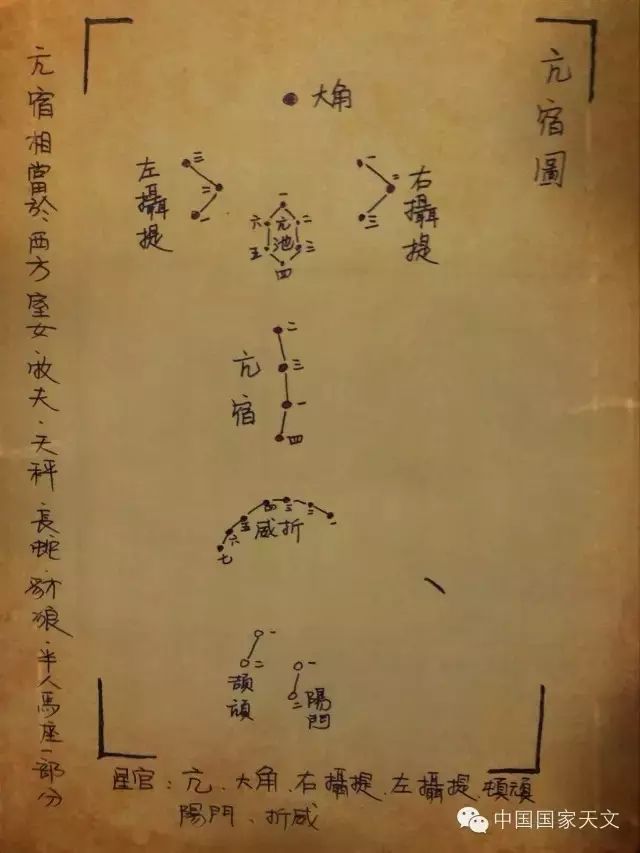 亢宿圖
大角
右攝提
一
二
三
左攝提
三
二
一
亢池
一
二
三
四
五
六
亢宿
二
三
一
四
折威
一
二
三
四
五
六
七
頑
一
二
陽門
一
二
亢宿相當於西方室女、牧夫、天秤、長蛇、豺狼、半人馬座一部分
星官：亢、大角、右攝提、左攝提、頓頑
陽門、折威
中国国家天文